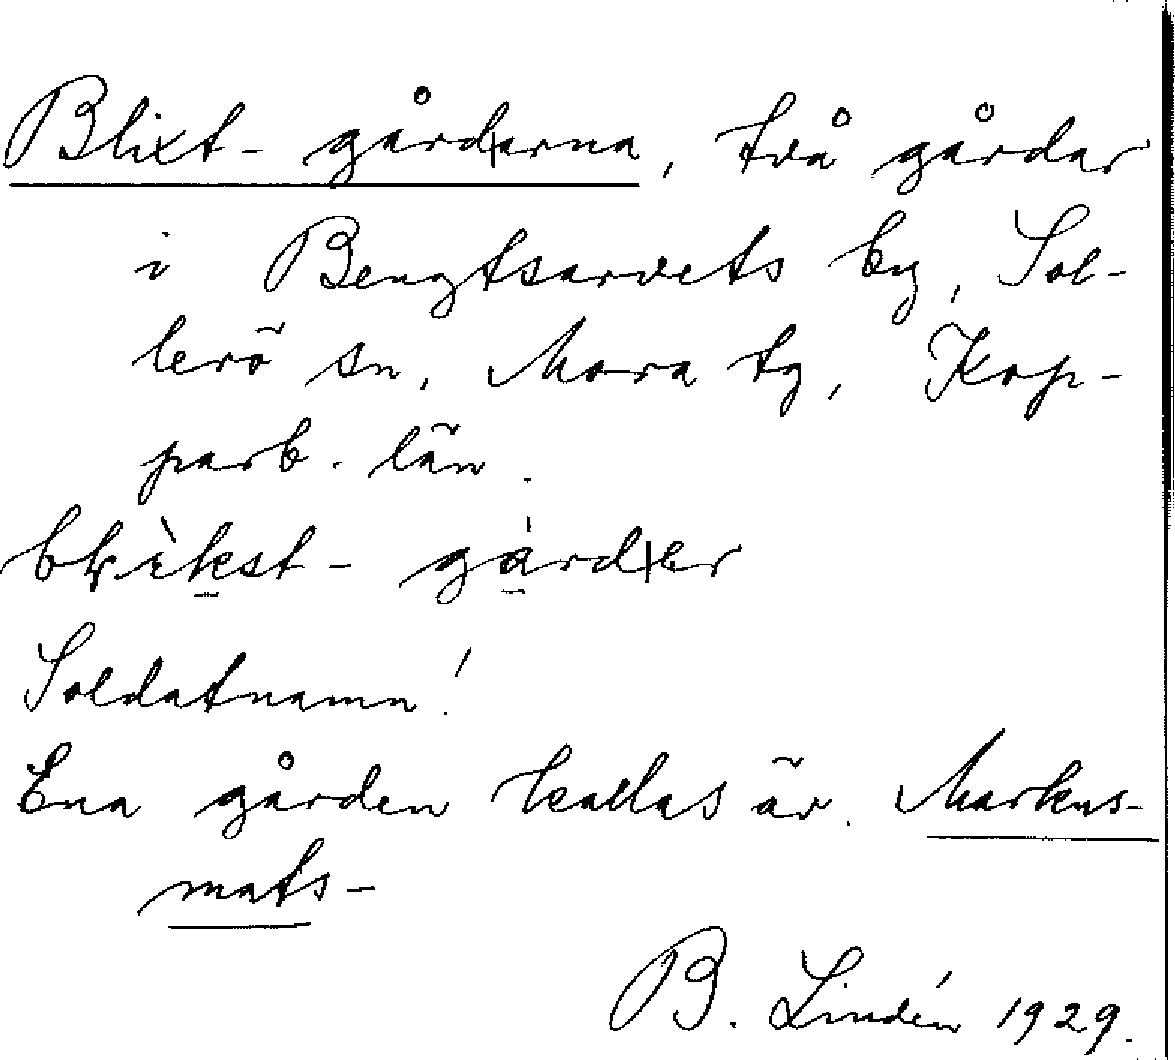 Blixt-gårdarna, två gårdar
i Bengtsarvets by, Sol-
lerö sn, Mora tg, Kop-
parb. län.
Soldatnamn!
Ena gården kallas är. Markus-
mats-
B. Lindén 1929.